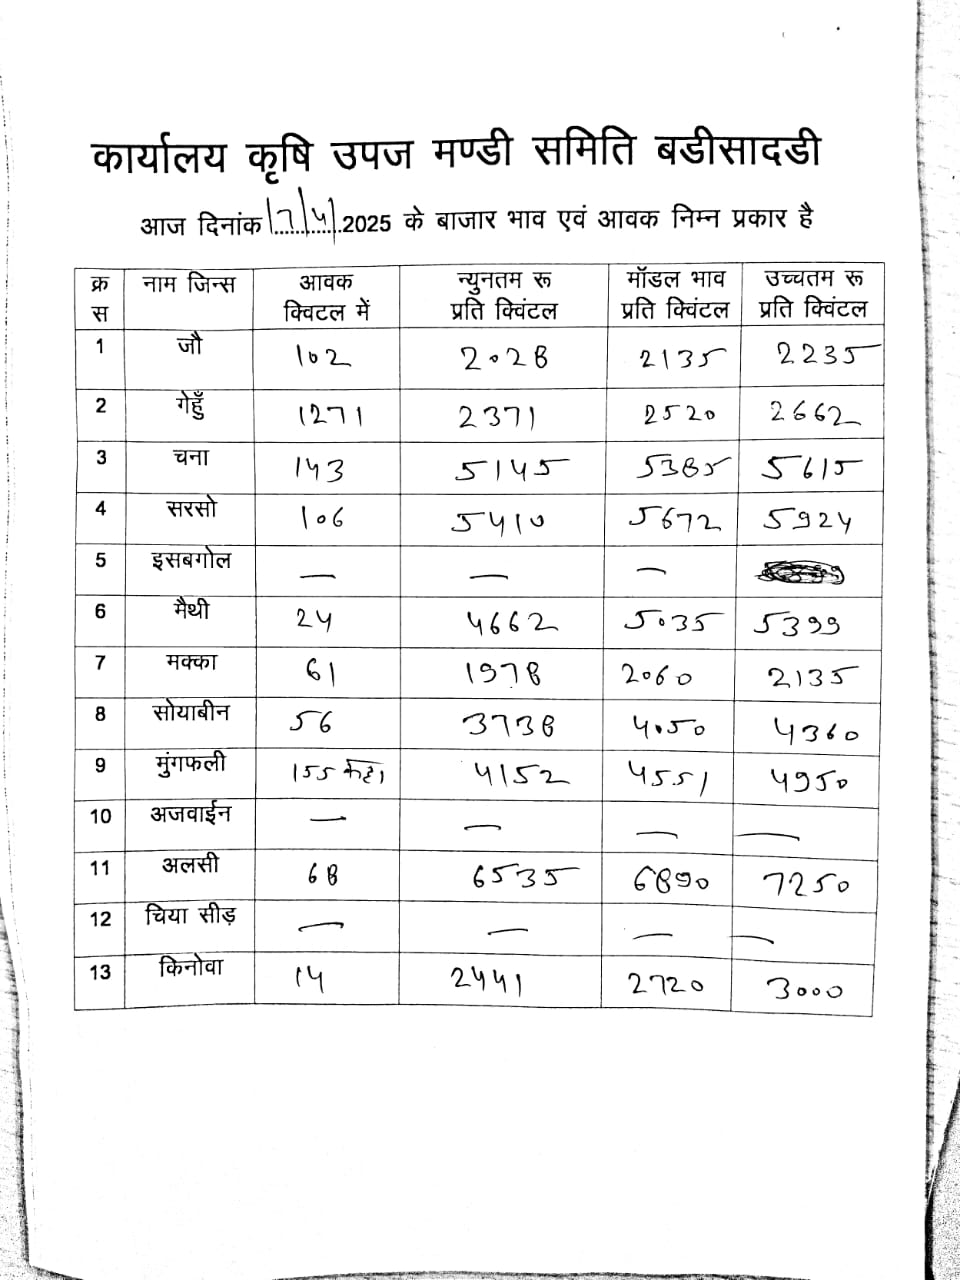 कार्यालय कृषि उपज मण्डी समिति बडीसादडी
आज दिनांक 17/4/2025 के बाजार भाव एवं आवक निम्न प्रकार है
क्र स | नाम जिन्स | आवक क्विटल में | न्युनतम रू प्रति क्विंटल | मॉडल भाव प्रति क्विंटल | उच्चतम रू प्रति क्विंटल
1 | जौ | 102 | 2028 | 2135 | 2235
2 | गेहुँ | 1271 | 2371 | 2520 | 2662
3 | चना | 143 | 5145 | 5385 | 5615
4 | सरसो | 106 | 5410 | 5672 | 5924
5 | इसबगोल | — | — | — |
6 | मैथी | 24 | 4662 | 5035 | 5399
7 | मक्का | 61 | 1978 | 2060 | 2135
8 | सोयाबीन | 56 | 3738 | 4050 | 4360
9 | मुंगफली | 155 | 4152 | 4551 | 4950
10 | अजवाईन | — | — | — | —
11 | अलसी | 68 | 6535 | 6890 | 7250
12 | चिया सीड़ | — | — | — | —
13 | किनोवा | 14 | 2441 | 2720 | 3000